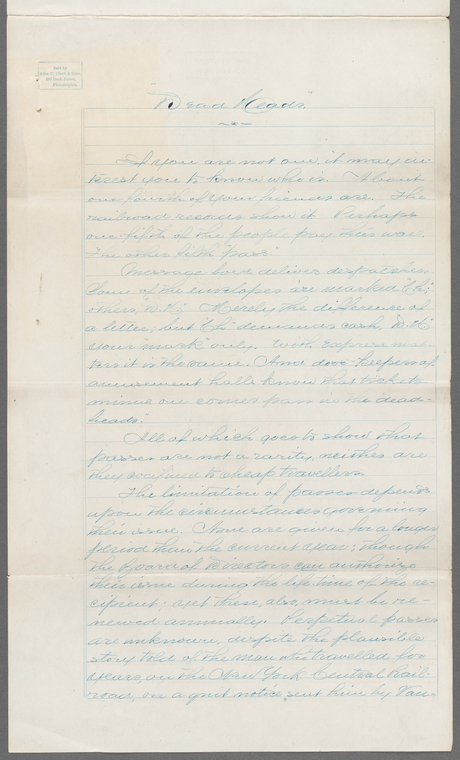 Sold by
Philadelphia.
"Dead Heads"
If you are not one, it may in-
terest you to know who is. About
one fourth of your friends are. The
railroad records show it. Perhaps
one fifth of the people pay their way.
The other fifth "pass."
Message boys deliver despatches.
Some of the envelopes are marked
others "D.H." Merely the difference of
a letter; but demands cash, "D.H."
your "mark" only. With express mat-
ters it is the same. And door-keepers of
amusement halls know that tickets
minus one corner pass in the "dead-
heads."
All of which goes to show that
passes are not a rarity, neither are
they confined to cheap travellers.
The limitation of passes depends
upon the circumstances governing
their issue. None are given for a longer
period than the current year; though
the Board of Directors can authorize
their issue during the life time of the re-
cipient; yet these, also, must be re-
newed annually. Perpetual passes
are unknown, despite the plausible
story told of the man who travelled for
years, on the New York Central Rail-
road, on a quit notice, sent him by Van-